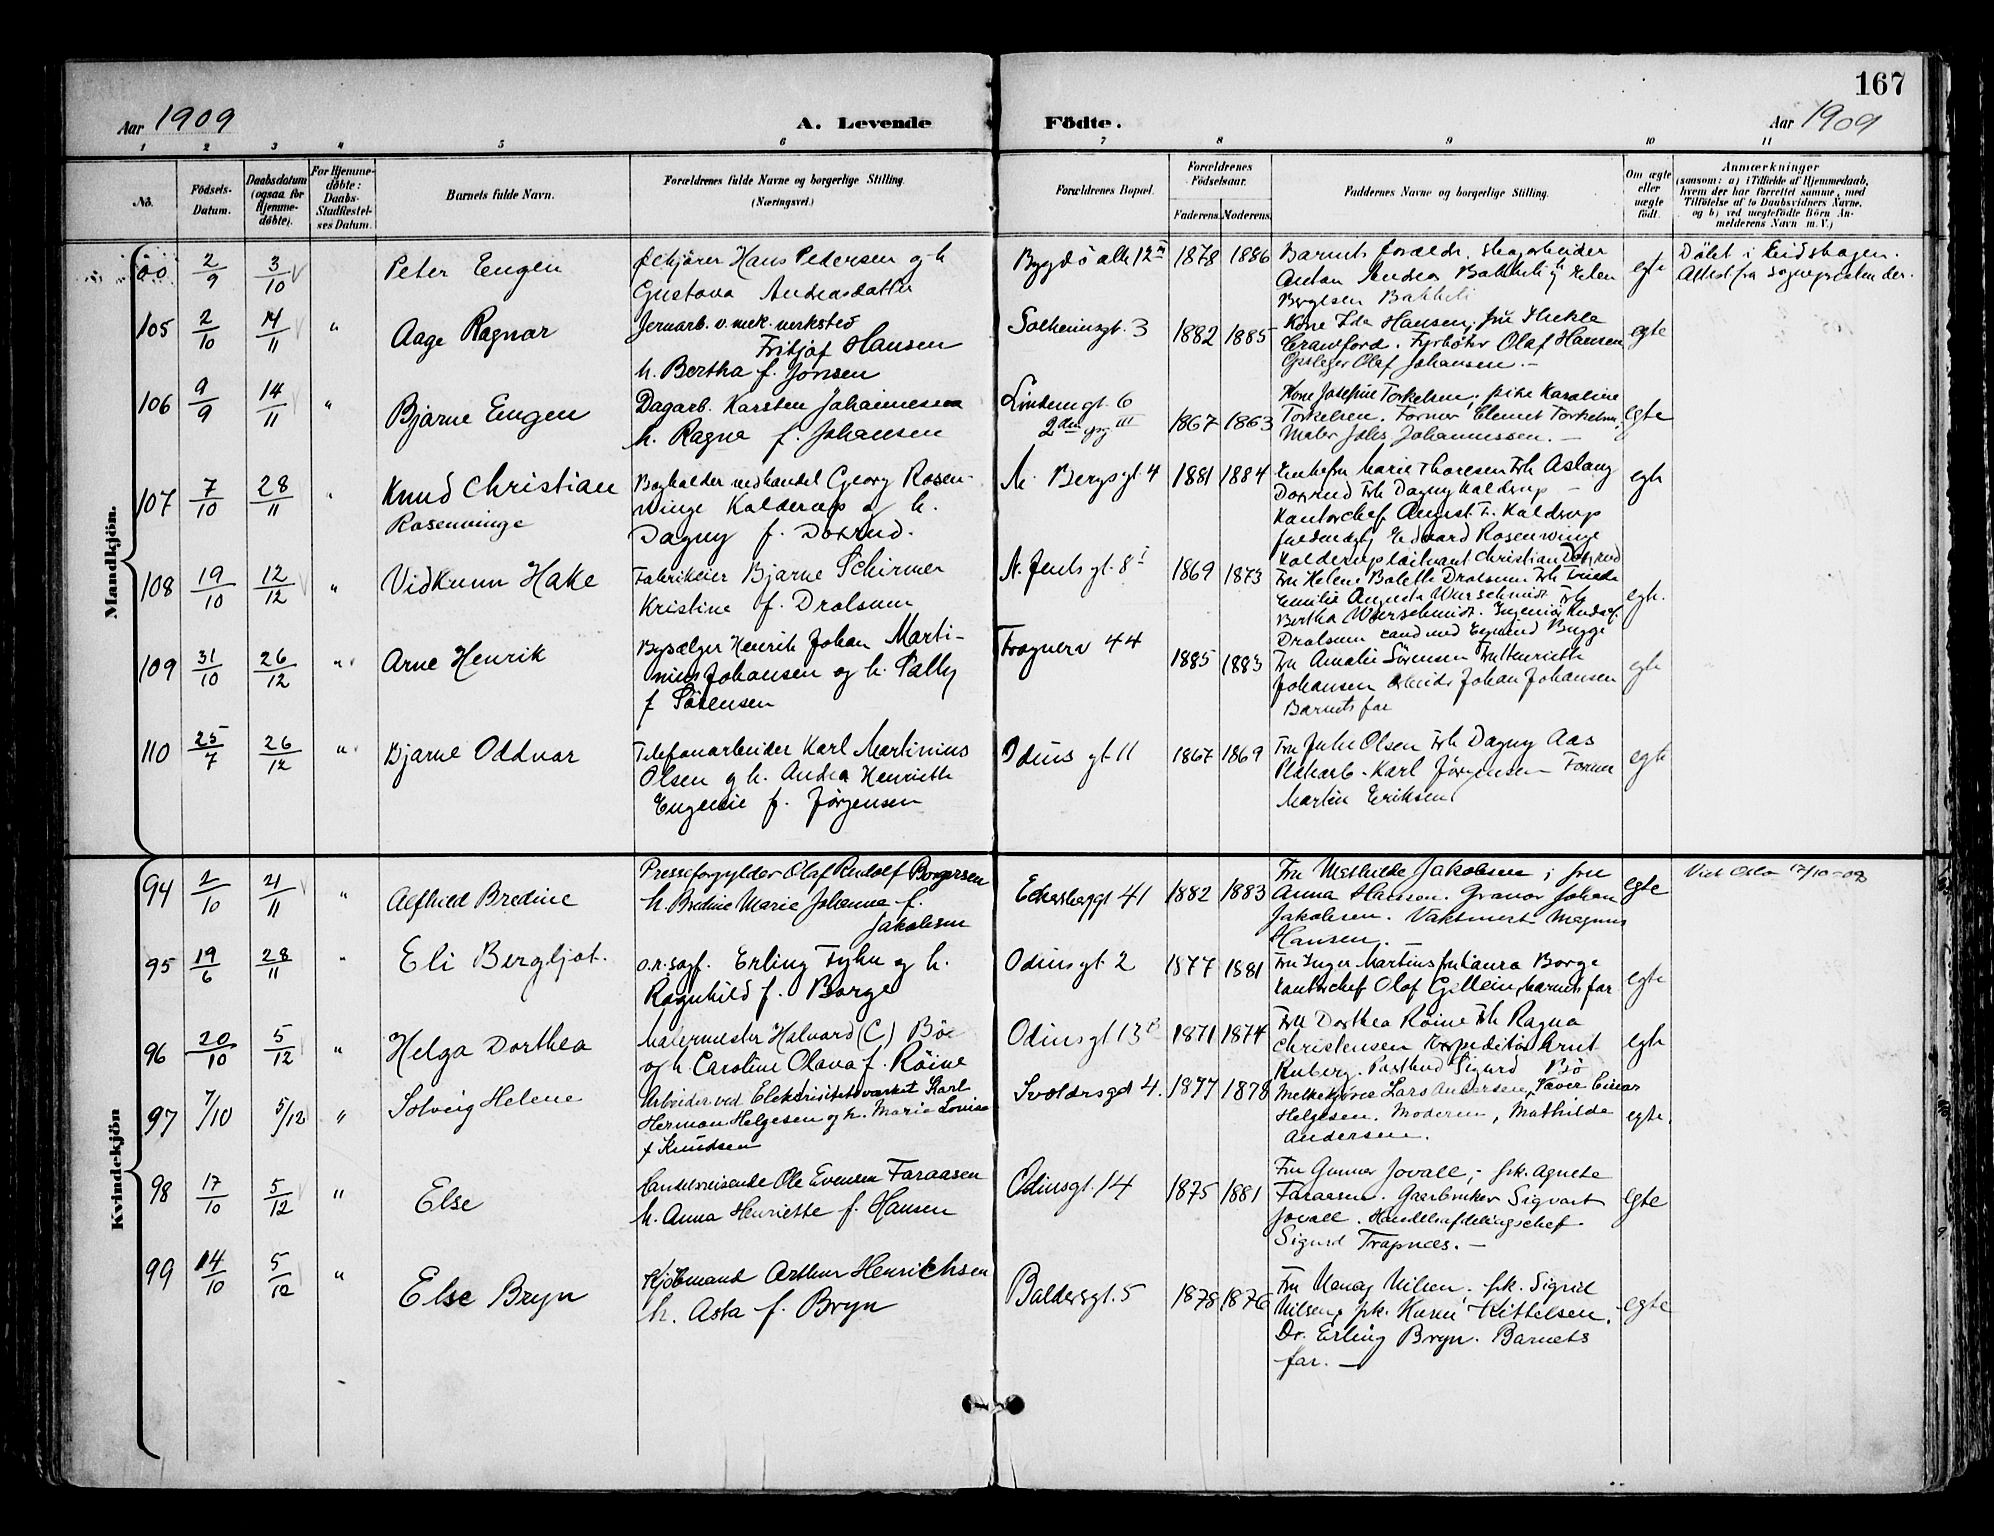 167
Aar 1909
A. Levende
Födte.
Aar 1909
1 2 3 4 5 6 7 8 9 10 11
No.
Födsels-
Datum.
Daabsdatum
(ogsaa for
Hjemme-
døbte).
For Hjemme-
døbte:
Daabs-
Stadfæstel-
ses Datum.
Barnets fulde Navn.
Forældrenes fulde Navne og borgerlige Stilling.
(Næringsvei.)
Forældrenes Bopæl.
Forældrenes
Födselsaar.
Faderens.
Moderens.
Faddernes Navne og borgerlige Stilling.
Om ægte
eller
uægte
födt.
Anmærkninger
(saasom: a) i Tilfælde af Hjemmedaab,
hvem der har forrettet samme, med
Tilföielse af to Daabsvidners Navne,
og b) ved uægtefödte Börn An-
melderens Navn m. V.)
Mandkjön.
2/9 3/10 Peter Eugen
Hans Pedersen og h
Gustava Andreasdatter
Bygdö alle 12 1878 1886
Barnets foreldr.
Anton
Bakketi
egte
Døbt i Eidskogen.
Attest fra Sognepresten der.
105 2/10 14/11 " Aage Ragnar
Jernarb. v. mek. verksted
Fritjof Hansen
h. Bertha f. Jonsen
Solheimsgt. 3 1882 1885
Kone Ida Hansen; fru Thekla
Crawford. Fyrbøter Olaf Hansen
Opsleger Olaf Johansen.-
egte
106 9/9 14/11 " Bjarne Eugen
Dagarb. Karsten Johannesen
h. Ragna f. Johansen
Lindemgt. 6
2den opg III
1867 1863
Kone Josefine Torkelsen; pike Karoline
Torkelsen. Former Clemet Torkelsen,
Maler Johs Johannessen.-
egte
107 7/10 28/11 " Knud Christian
Rosenvinge
Bogholder ved handel Georg Rosen-
winge Kolderup og h.
Dagny f. Doxrud.
N. Bergsgt 4 1881 1884
Enkefru Marie Thoresen Frk Aslaug
Doxrud Frk Dagny Koldrup
Kontorchef August T. Koldrup
Edvard Rosenwinge
Kolderup løitnant Christian Doxrud
egte
108 19/10 12/12 " Vidkunn Hake
Fabrikeier Bjarne Schirmer
Kristine f. Dralsum
N. Juelsgt. 8 I 1869 1873
Fru Helene Bolette Dralsum. Frk Frieda
Emilie Augusta Wurschmidt Frk
Bertha Wurschmidt. Ingeniør Rudolf
Dralsum cand med Eyvind Bugge
egte.
109 31/10 26/12 " Arne Henrik
Bysælger Henrik Johan Marti-
nius Johansen og h. Pally
f Sörensen
Frognerv 44 1885 1883
Fru Amalie Sörensen Fru Henriette
Johansen Arbeider Johan Johansen
Barnets far
egte
110 25/7 26/12 " Bjarne Oddvar
Telefonarbeider Karl Martinius
Olsen og h. Andrea Henriette
Eugenie f. Jørgensen
Odins gt 11 1867 1869
Fru Julie Olsen Frk Dagny Aas
Platearb. Karl Jørgensen Former
Martin Eriksen
egte
Kvindekjön
94 2/10 21/11 " Alfhild Bredine
Presseforgylder Olaf Rudolf Borgersen
h. Bredine Marie Johanne f.
Jakobsen
Eckersbeggt 41 1882 1883
Fru Mathilde Jakobsen; fru
Anna Hansen. Gravør Johan
Jakobsen. Vaktmest. Magnus
Hansen.-
egte
Viet Oslo 17/10-08
95 19/6 28/11 " Eli Bergljot.
o.r.sagf. Erling Fyhn og h.
Ragnhild f. Borge
Odinsgt. 2 1877 1881
Fru Inger Martins fru Laura Borge
Kontorchef Olaf Gjellein, barnets far
egte
96 20/10 5/12 " Helga Dorthea
Malermester Halvard (C) Böe
og h. Caroline Olava f. Röine
Odinsgt 13 B 1871 1874
Fru Dorthea Röine Frk Ragna
Christensen Expeditör Arnt
Ruberg. Postbud Sigurd Bö
egte
97 7/10 5/12 " Solveig Helene
Arbeider ved Elektrisitetsværket Karl
Herman Helgesen og h. Marie Lovise
f Knudsen
Svoldrsgd 4. 1877 1878
Melkekjører Lars Andersen, Paver Einar
Helgesen. Moderen, Mathilde
Andersen.
egte.
98 17/10 5/12 " Else
Handelsreisende Ole Evensen Faraasen
h. Anna Henriette f. Hansen
Odinsgt. 14 1875 1881
Fru Gunnor Jovall; frk. Agnete
Faraasen. Gaardbruker Sigvart
Jovall. Handelsafdelingschef
Sigurd Trapnæs.-
egte
99 14/10 5/12 " Else Bryn
Kjøbmand Arthur Henrichsen
h. Asta f. Bryn
Baldersgt. 5 1878 1876
Fru Nanny Nilsen. frk. Sigrid
Nilsen, frk. Karen Kittelsen.
Dr. Erling Bryn. Barnets
far.-
egte